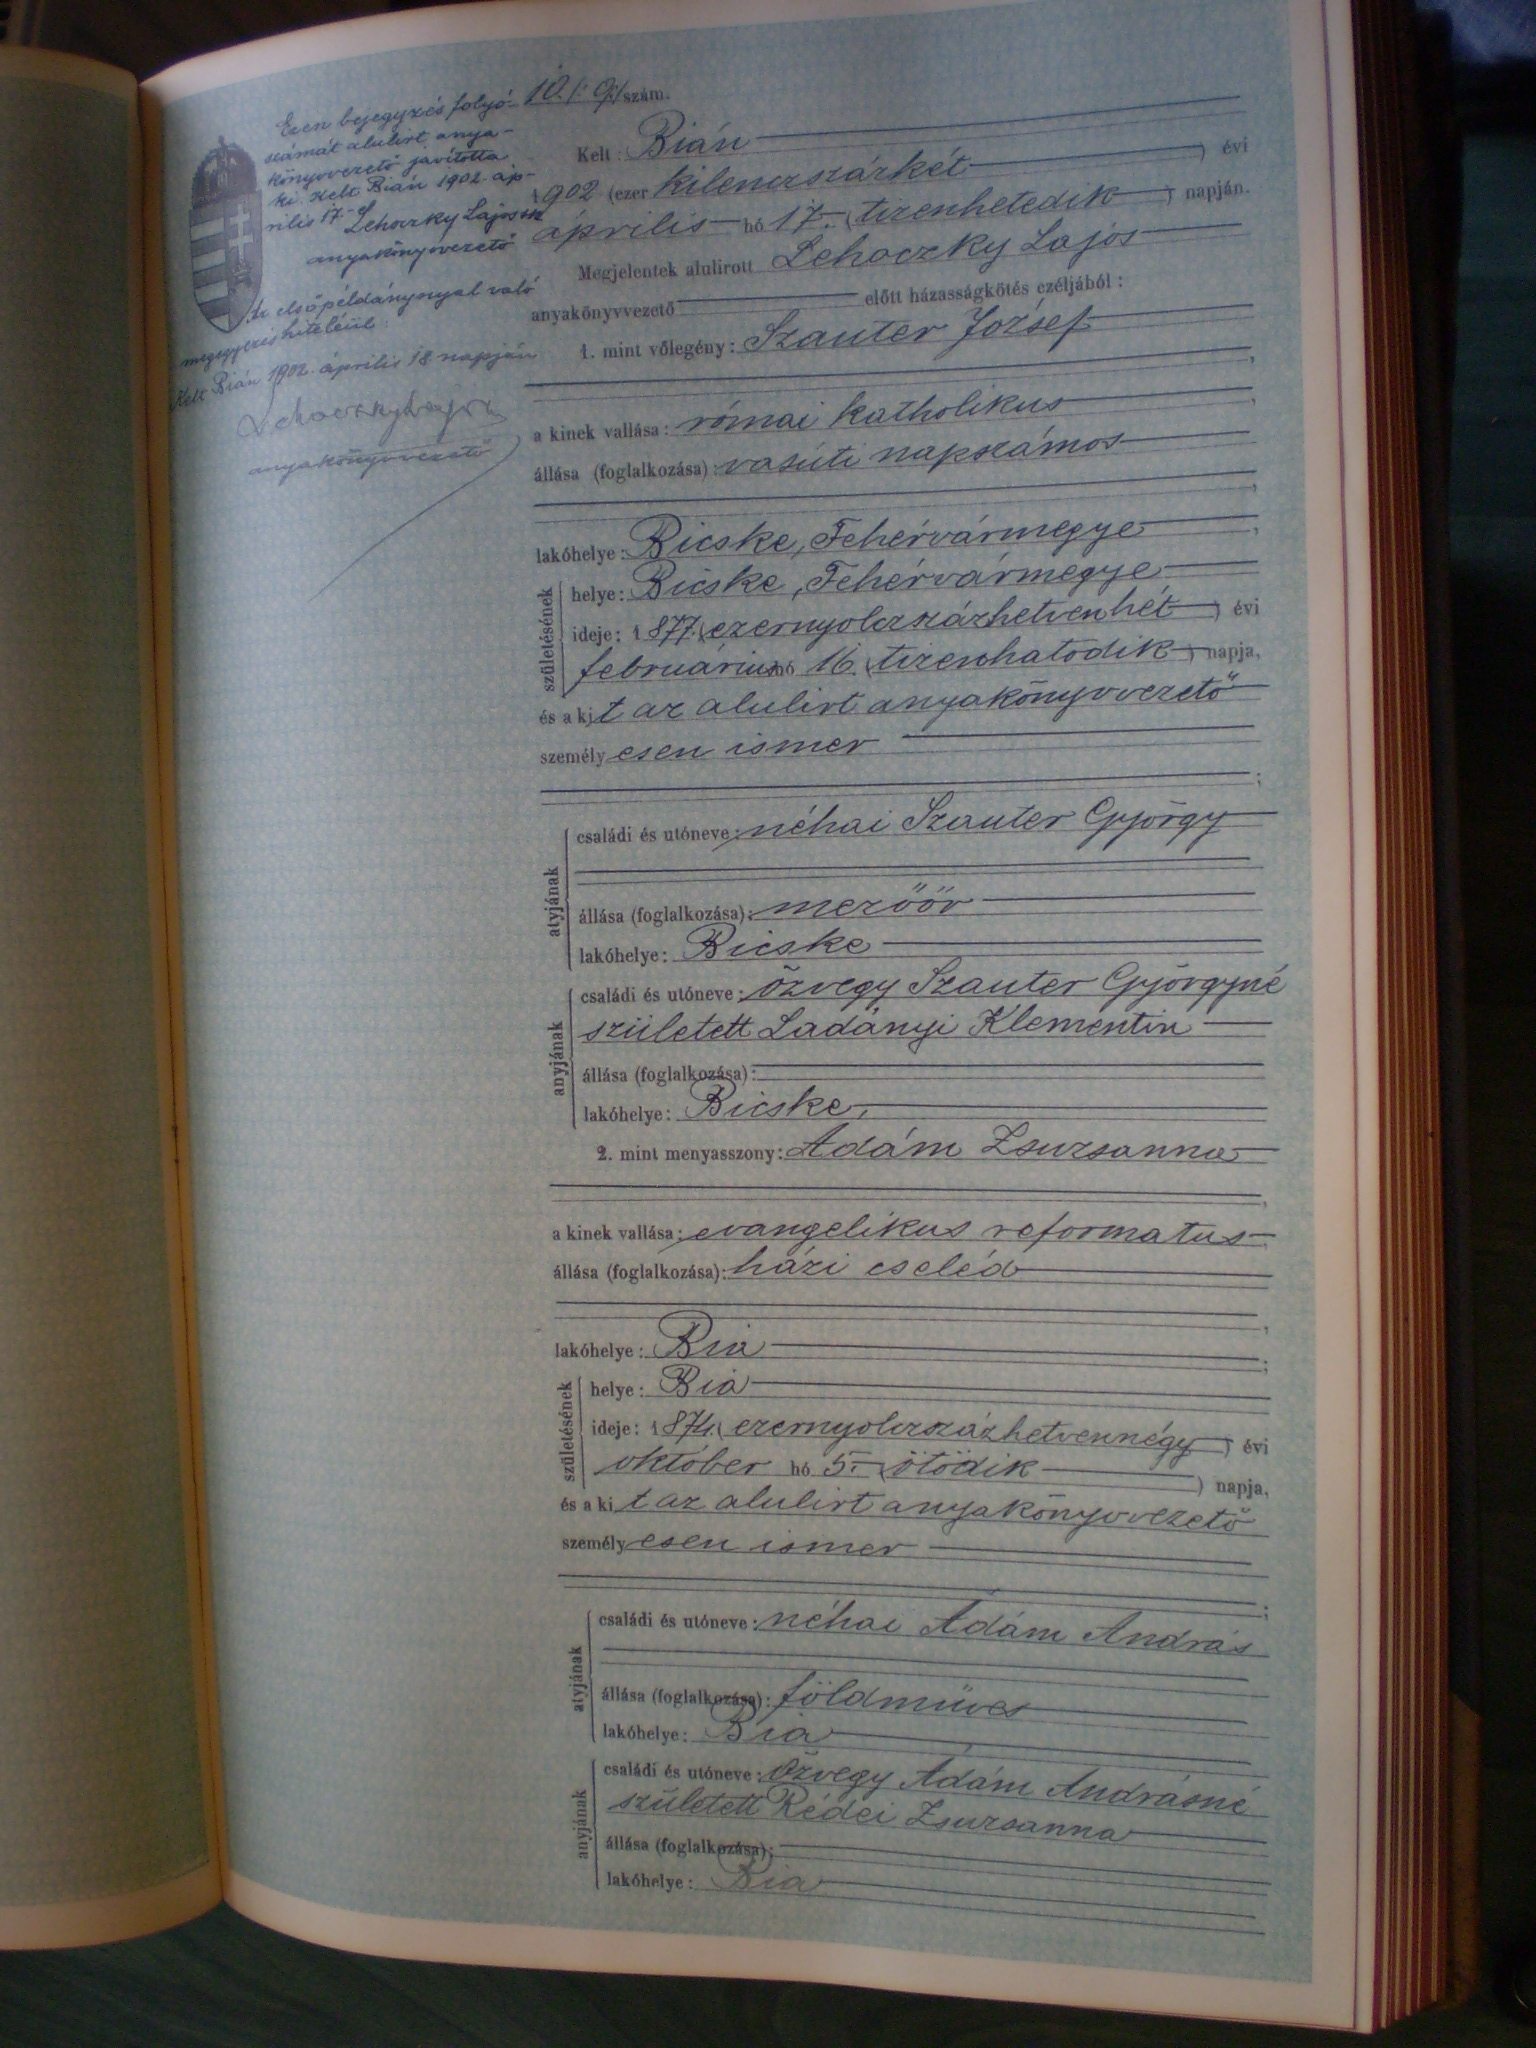 Ezen bejegyzés folyó-
számát alulirt anya-
könyvvezető javította
ki. Kelt Bián 1902. áp-
rilis 17. Lehoczky Lajos
anyakönyvvezető
Az elsőpéldánynyal való
megegyezés hiteléül:
Kelt Bián 1902. április 18 napján
Lehoczky Lajos
anyakönyvvezető
10. /: 9 :/ szám.
Kelt: Bián
1902 (ezer kilenczszázkét ) évi
április hó 17. (tizenhetedik ) napján.
Megjelentek alulirott Lehoczky Lajos
anyakönyvvezető előtt házasságkötés czéljából:
1. mint vőlegény: Szauter József
a kinek vallása: római katholikus
állása (foglalkozása): vasúti napszámos
lakóhelye: Bicske, Fehérvármegye
születésének
helye: Bicske, Fehérvármegye
ideje: 1877. (ezernyolczszázhetvenhét ) évi
február hó 16. (tizenhatodik ) napja,
és a kit az alulirt anyakönyvvezető
személyesen ismer
atyjának
családi és utóneve: néhai Szauter György
állása (foglalkozása): mezőőr
lakóhelye: Bicske
anyjának
családi és utóneve: özvegy Szauter Györgyné
született Ladányi Klementin
állása (foglalkozása):
lakóhelye: Bicske,
2. mint menyasszony: Ádám Zsuzsanna
a kinek vallása: evangelikus reformatus
állása (foglalkozása): házi cseléd
lakóhelye: Bia
születésének
helye: Bia
ideje: 1874. (ezernyolczszázhetvennégy ) évi
október hó 5. (ötödik ) napja,
és a kit az alulirt anyakönyvvezető
személyesen ismer
atyjának
családi és utóneve: néhai Ádám András
állása (foglalkozása): földműves
lakóhelye: Bia
anyjának
családi és utóneve: özvegy Ádám Andrásné
született Rédei Zsuzsanna
állása (foglalkozása):
lakóhelye: Bia